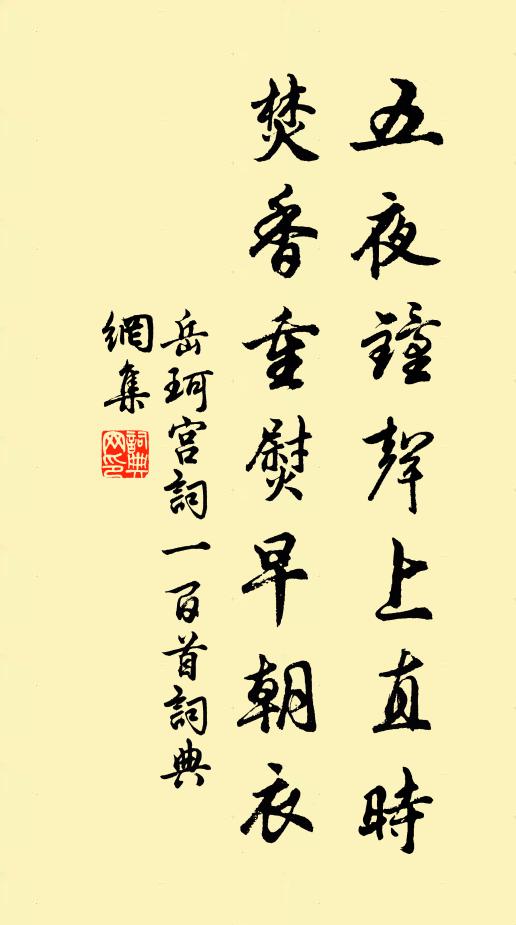 五夜鐘聲上直時
焚香重熨早朝衣
岳珂宮詞一百首詞典
網集
詞典網印